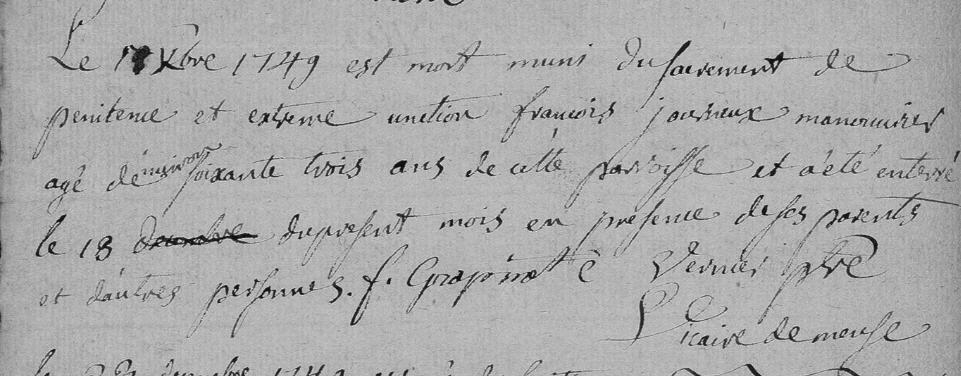 Le 17 Xbre 1749 est mort muni du sacrement de
penitence et extreme unction francois journeux manouvrier
agé d'environ soixante trois ans de cette parroisse et a été enterré
le 18 decembre du present mois en presence de ses parents
et d'autres personnes. f. Grapinet Vernier ptre
Vicaire de meuse
1749